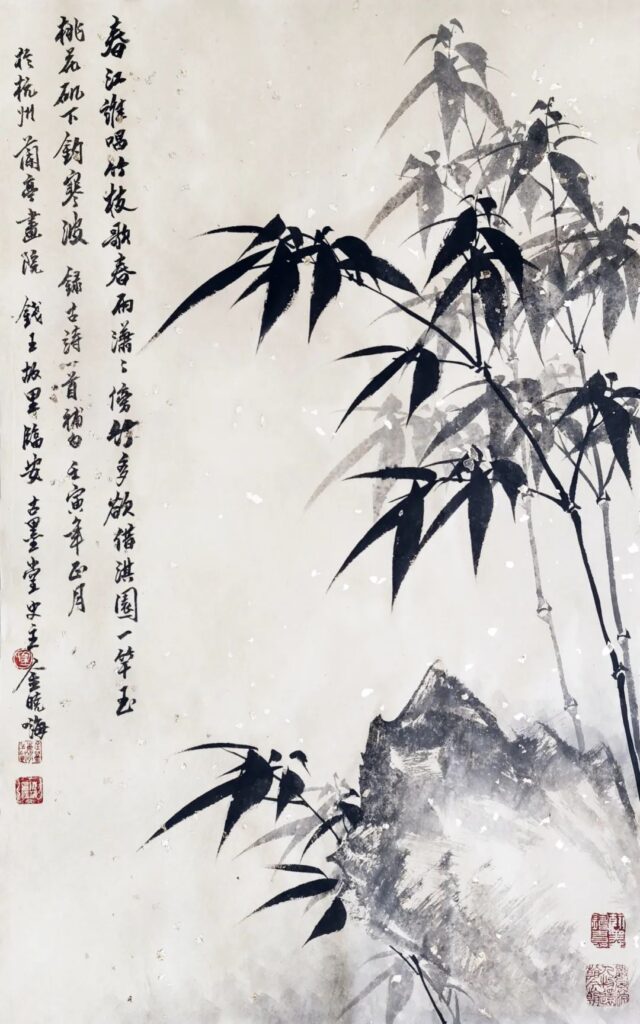 春江誰唱竹枝歌春雨瀟〻傍竹多欲借淇園一竿玉
桃花矶下釣寒波 錄古詩一首補白 壬寅年正月
於杭州蘭亭畫院 錢王故里臨安 古墨堂史主 金曉